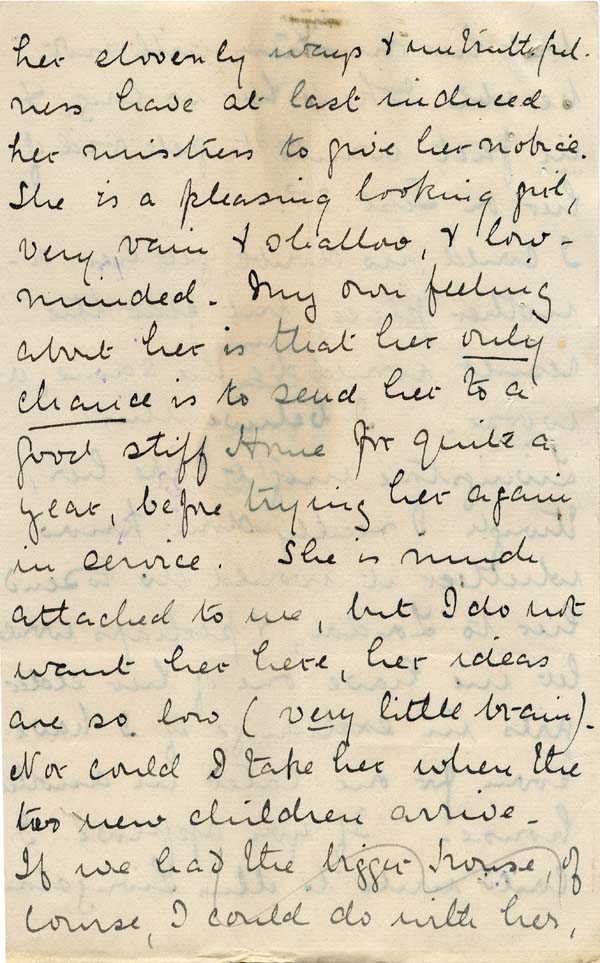 her slovenly ways & untruthful-
ness have at last induced
her mistress to give her notice.
She is a pleasing looking girl,
very vain & shallow, & low-
minded. My own feeling
about her is that her only
chance is to send her to a
good stiff Home for quite a
year, before trying her again
in service. She is much
attached to me, but I do not
want her here, her ideas
are so low (very little brain).
Nor could I take her when the
two new children arrive.
If we had the bigger house, of
course, I could do with her,